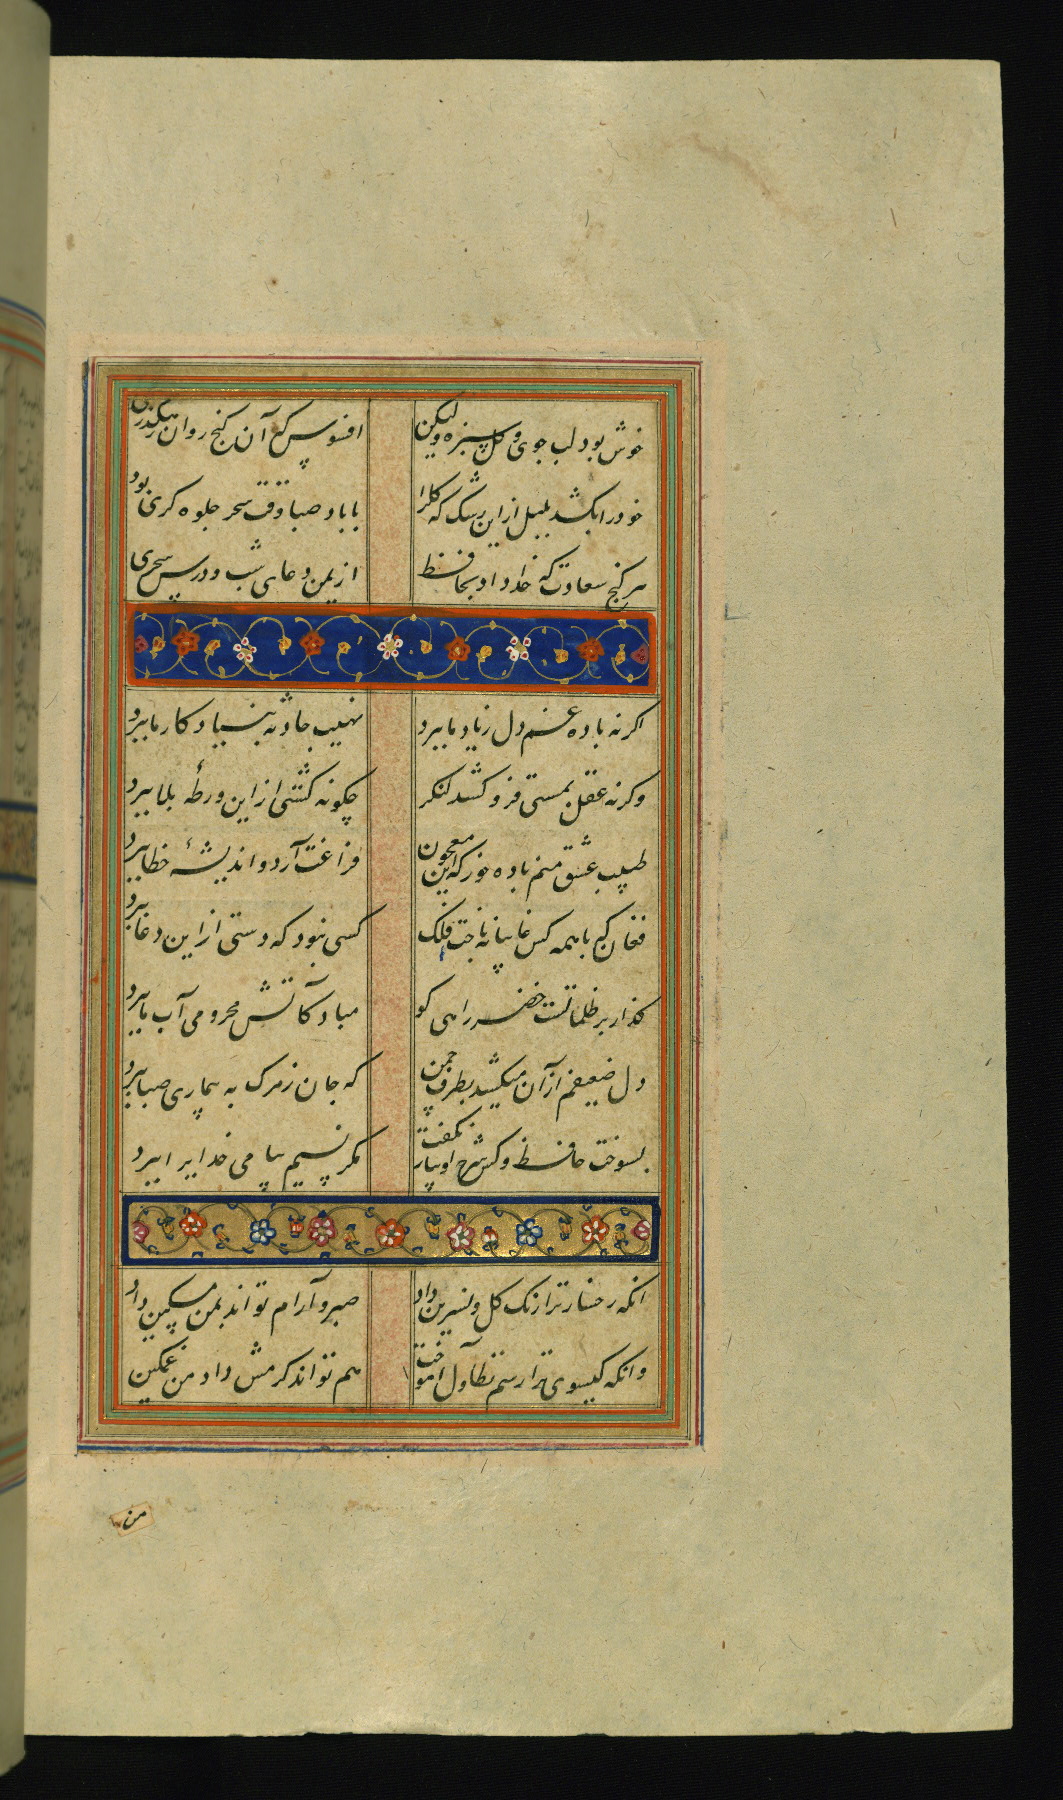 خوش بود لب جوی و گل و سبزه ولیکن افسوس که آن گنج روان رهگذری بود
خود را بکشد بلبل ازین رشک که گل را با باد صبا وقت سحر جلوه گری بود
هر گنج سعادت که خدا داد بحافظ از یمن دعای شب و درس سحری بود
اگر نه باده غم دل زیاد ما ببرد نهیب حادثه بنیاد کار ما ببرد
وگر نه عقل بمستی فرو کشد لنگر چگونه کشتی از این ورطهٔ بلا ببرد
طبیب عشق منم باده خور که این معجون فراغت آرد و اندیشهٔ خطا ببرد
فغان که با همه کس غایبانه باخت فلک کسی نبود که دستی از این دغا ببرد
گذار بر ظلماتست خضر راهی کو مباد کآتش محرومی آب ما ببرد
دل ضعیفم از آن میکشد بطرف چمن که جان ز مرگ به بیماری صبا ببرد
بسوخت حافظ و کس شرح او بیار نگفت مگر نسیم پیامی خدایرا ببرد
آنکه رخسار ترا رنگ گل و نسرین داد صبر و آرام تواند بمن مسکین داد
وانکه گیسوی ترا رسم تطاول آموخت هم تواند کرمش داد من غمگین
من